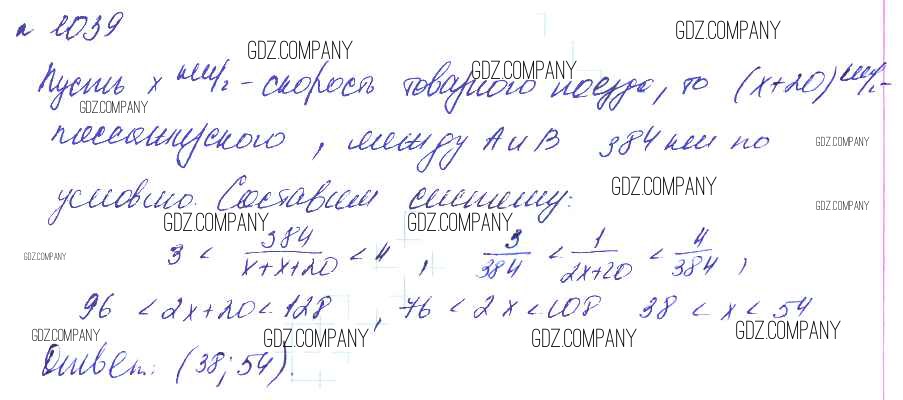 n 1039
GDZ.COMPANY GDZ.COMPANY
Пусть x км/ч - скорость товарного поезда, то (x+20) км/ч -
GDZ.COMPANY GDZ.COMPANY
пассажирского, между A и B 384 км по
GDZ.COMPANY
условию. Составим систему:
GDZ.COMPANY GDZ.COMPANY GDZ.COMPANY GDZ.COMPANY
3 < 384/(x+x+20) < 4, 3/384 < 1/(2x+20) < 4/384,
GDZ.COMPANY
96 < 2x+20 < 128, 76 < 2x < 108 38 < x < 54
GDZ.COMPANY GDZ.COMPANY GDZ.COMPANY GDZ.COMPANY
Ответ: (38; 54).